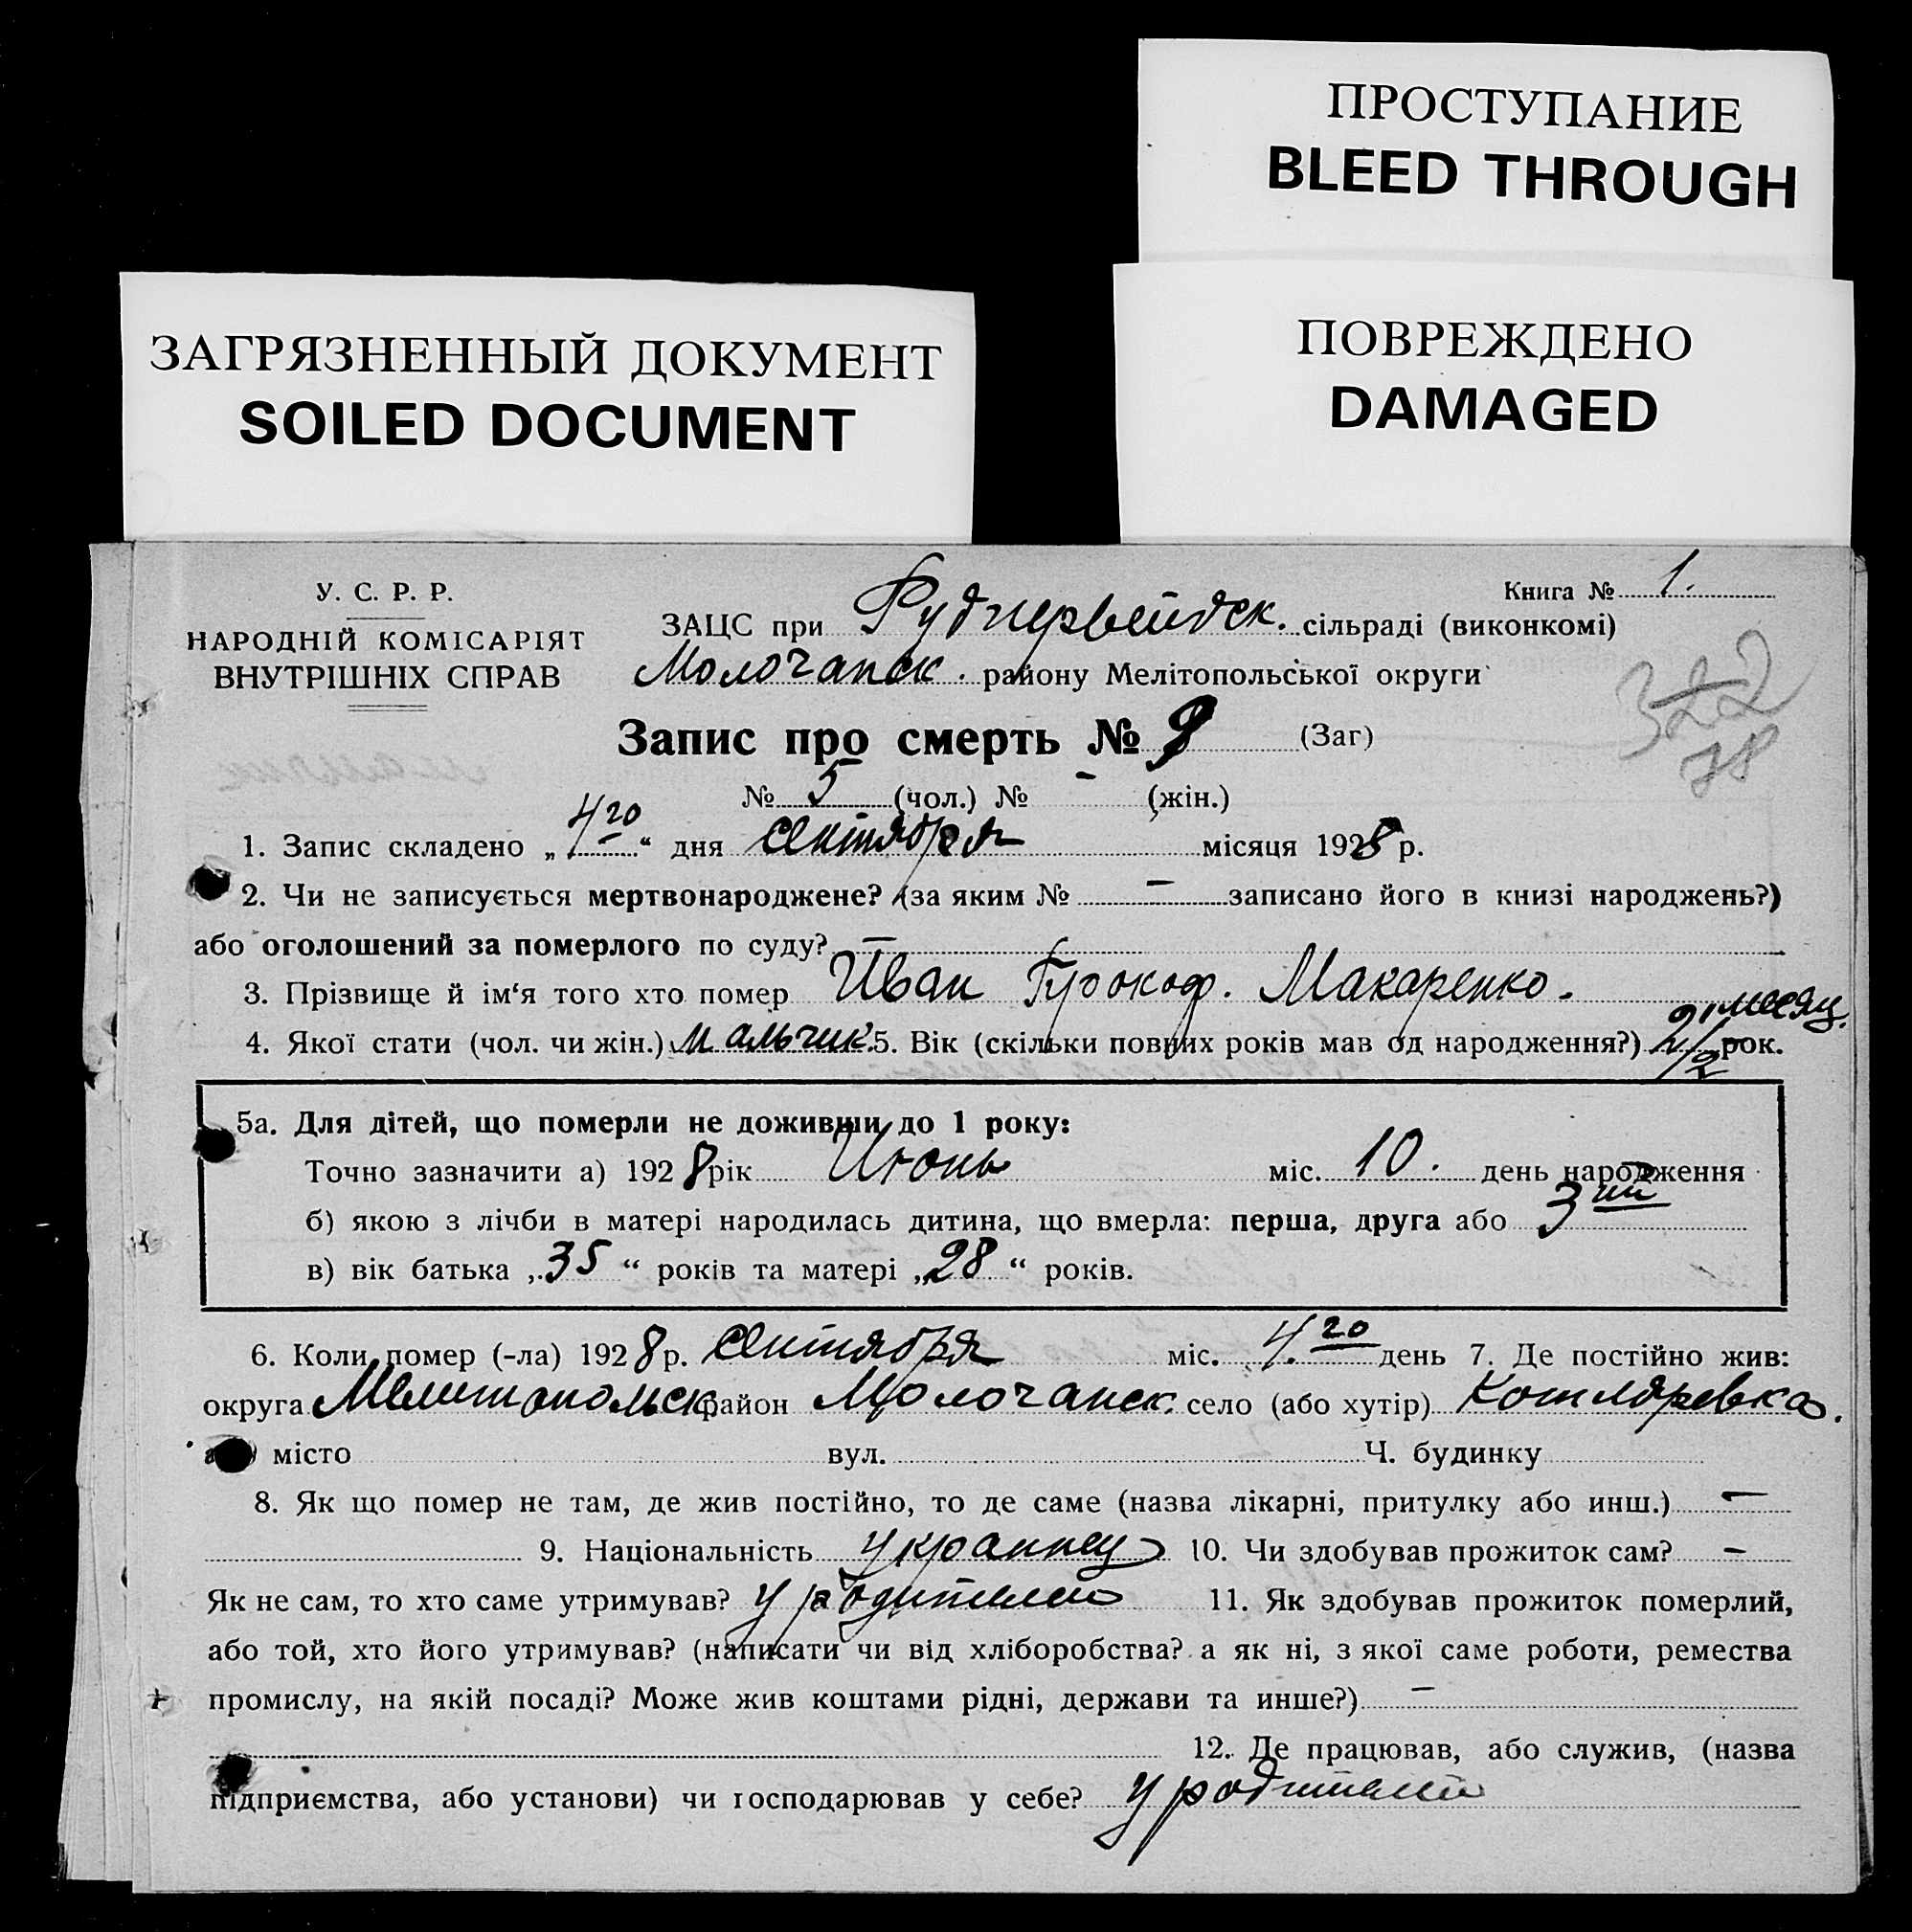 ПРОСТУПАНИЕ
BLEED THROUGH
ЗАГРЯЗНЕННЫЙ ДОКУМЕНТ
SOILED DOCUMENT
ПОВРЕЖДЕНО
DAMAGED
У. С. Р. Р.
НАРОДНІЙ КОМІСАРІЯТ
ВНУТРІШНІХ СПРАВ
Книга № 1.
ЗАЦС при Руднервейдск. сільраді (виконкомі)
Молочанск. району Мелітопольської округи
322
78
Запис про смерть № 9 (Заг)
№ 5 (чол.) № - (жін.)
1. Запис складено „4го“ дня сентября місяця 1928 р.
2. Чи не записується мертвонароджене? (за яким № — записано його в книзі народжень?)
або оголошений за померлого по суду? —
3. Прізвище й ім‘я того хто помер Иван Прокоф. Макаренко.
4. Якої статі (чол. чи жін.) мальчик. 5. Вік (скільки повних років мав од народження?) 2 1/2 месяц. рок.
5а. Для дітей, що померли не доживши до 1 року:
Точно зазначити а) 1928 рік Июнь міс. 10. день народження
б) якою з лічби в матері народилась дитина, що вмерла: перша, друга або 3ий
в) вік батька „35“ років та матері „28“ років.
6. Коли помер (-ла) 1928 р. сентября міс. 4го день 7. Де постійно жив:
округа Мелитопольск район Молочанск. село (або хутір) Котляревка.
місто вул. Ч. будинку
8. Як що помер не там, де жив постійно, то де саме (назва лікарні, притулку або инш.) —
9. Національність украинец 10. Чи здобував прожиток сам? —
Як не сам, то хто саме утримував? у родителей 11. Як здобував прожиток померлий,
або той, хто його утримував? (написати чи від хліборобства? а як ні, з якої саме роботи, ремества
промислу, на якій посаді? Може жив коштами рідні, держави та инше?) —
12. Де працював, або служив, (назва
підприємства, або установи) чи господарював у себе? у родителей